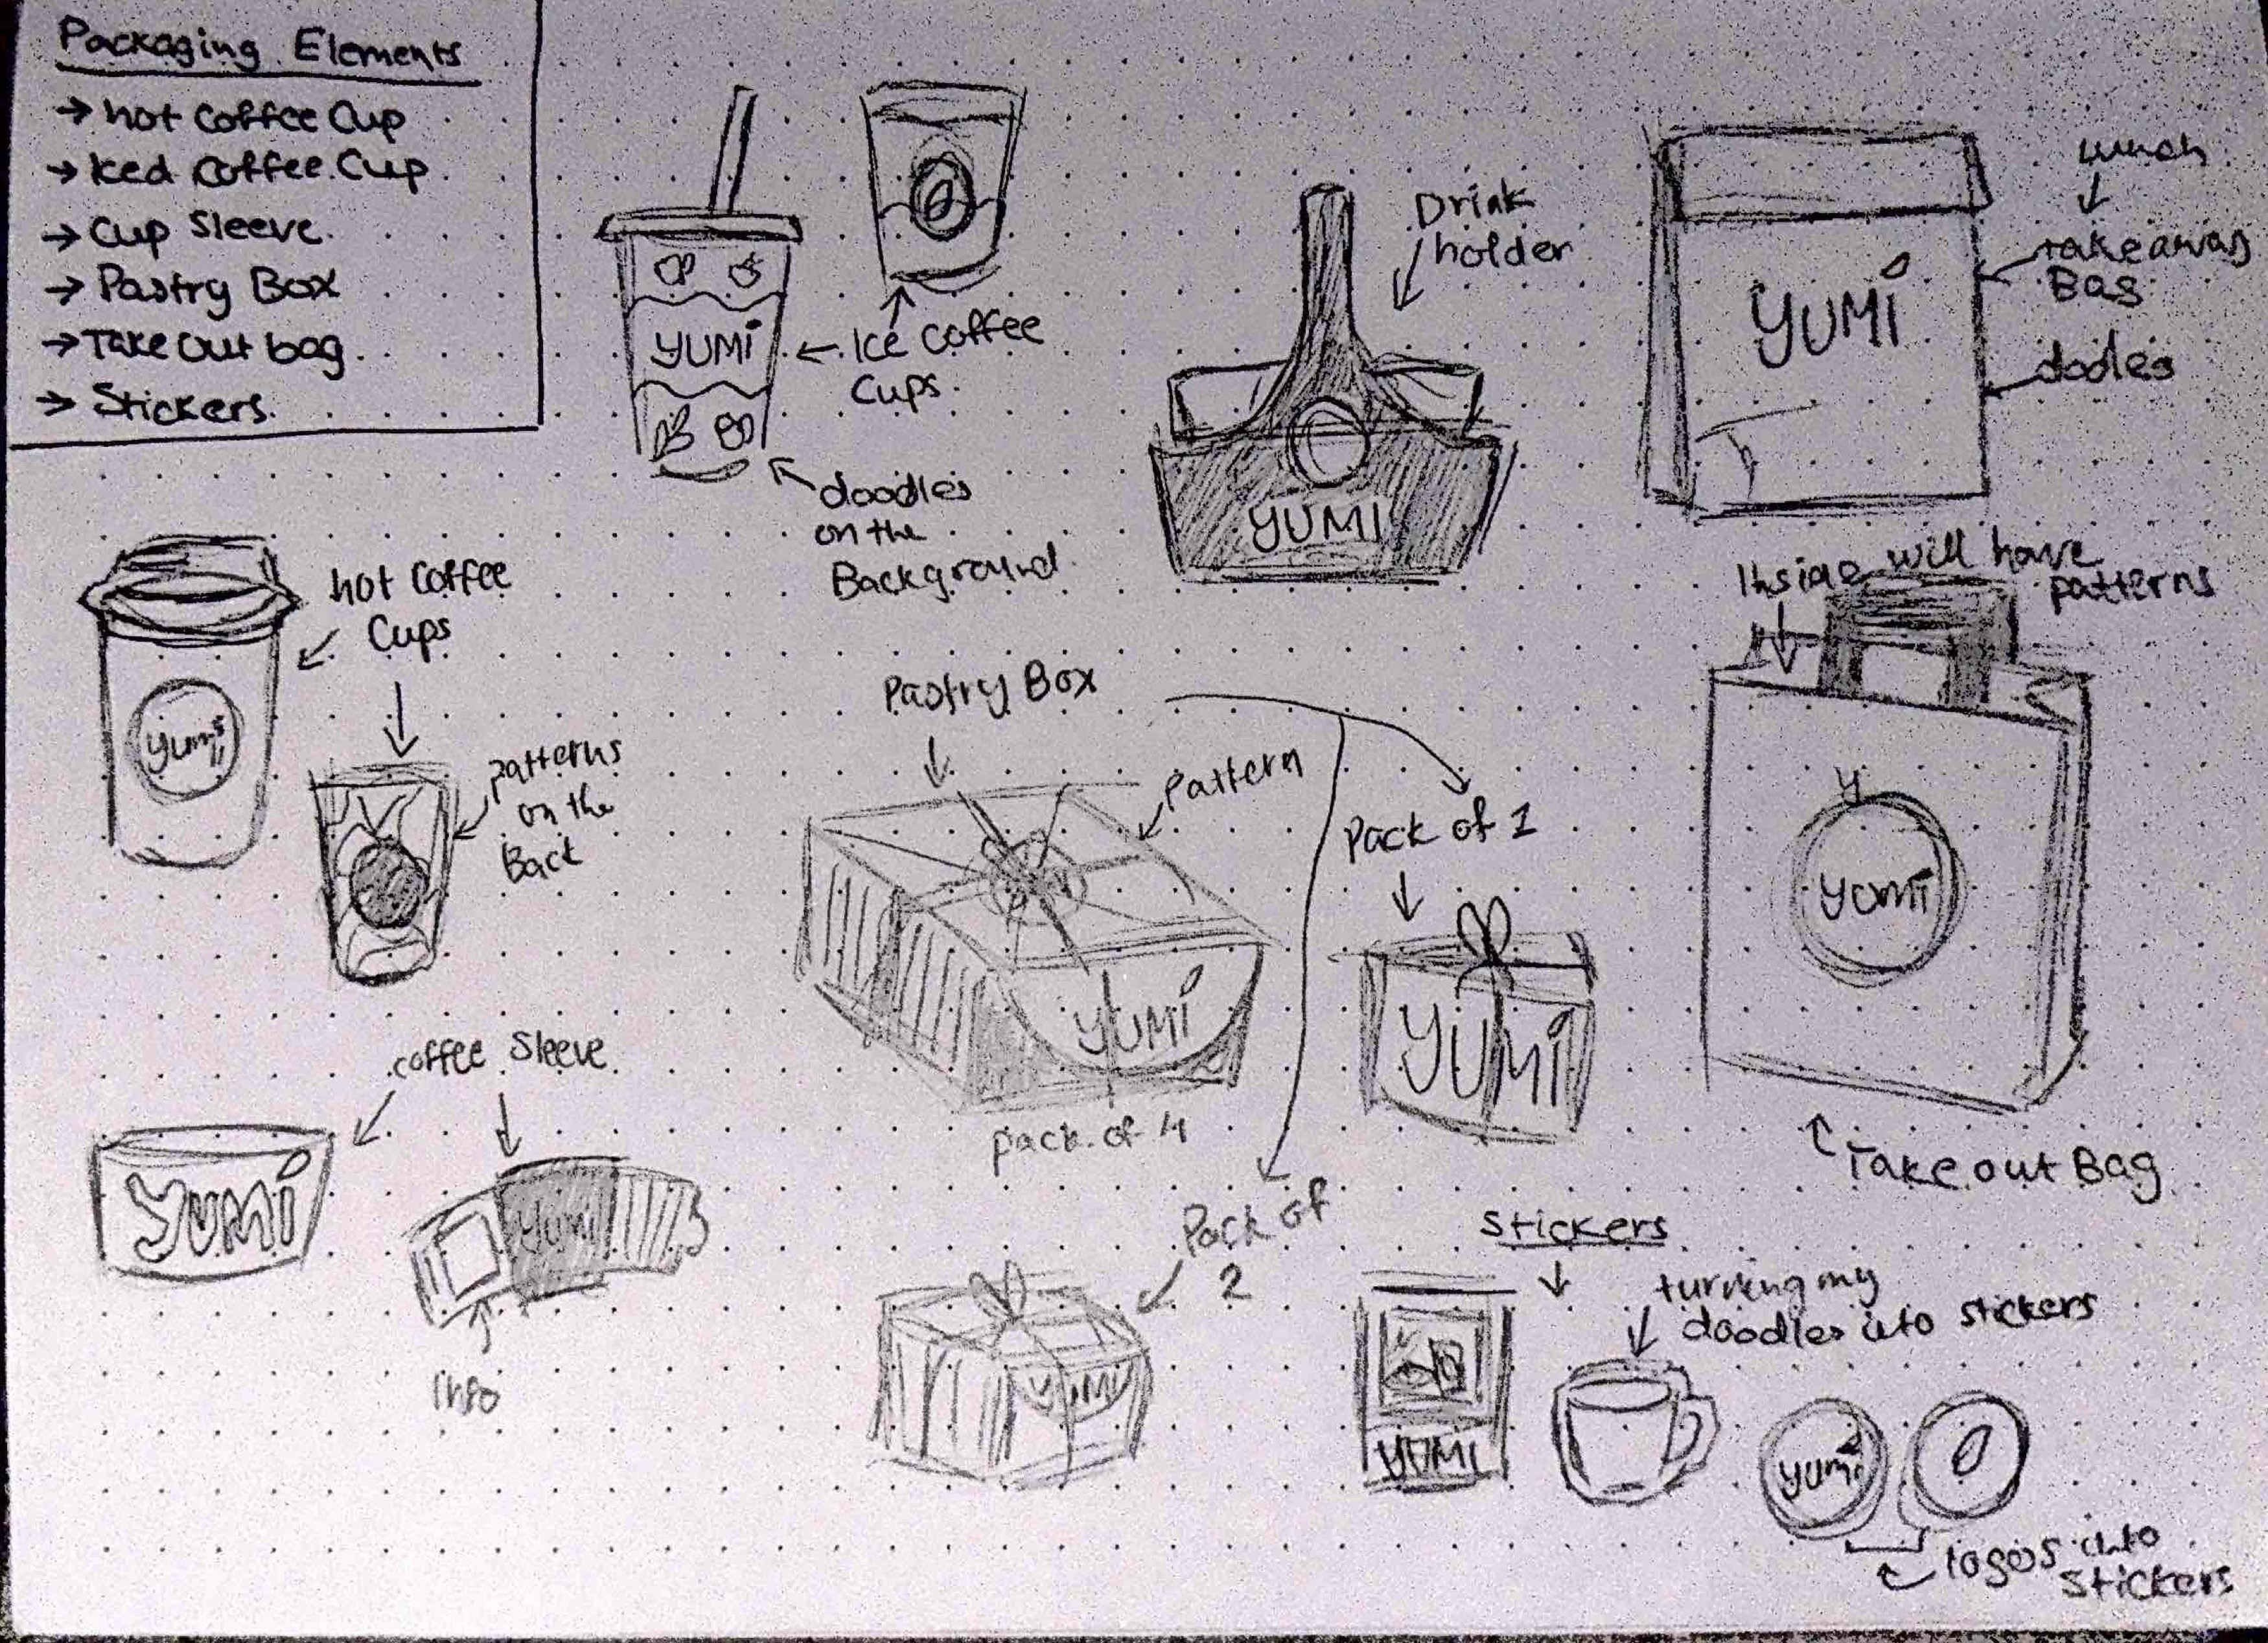 Packaging Elements
→ hot Coffee Cup
→ Iced Coffee Cup
→ Cup Sleeve
→ Pastry Box
→ Take Out bag
→ Stickers
YUMi
← Ice Coffee
Cups
doodles
on the
Background
Drink
holder
YUMI
lunch
takeaway
Bag
YUMi
doodles
hot Coffee
Cups
yumi
patterns
on the
Back
Pastry Box
Pattern
YUMi
pack of 4
Pack of 1
YUMi
Inside will have
patterns
y
yumi
Take out Bag
coffee Sleeve
YUMi
Yumi
Info
Pack of
2
YUMI
Stickers
turning my
doodles into stickers
YUMI
yumi
logos into
stickers